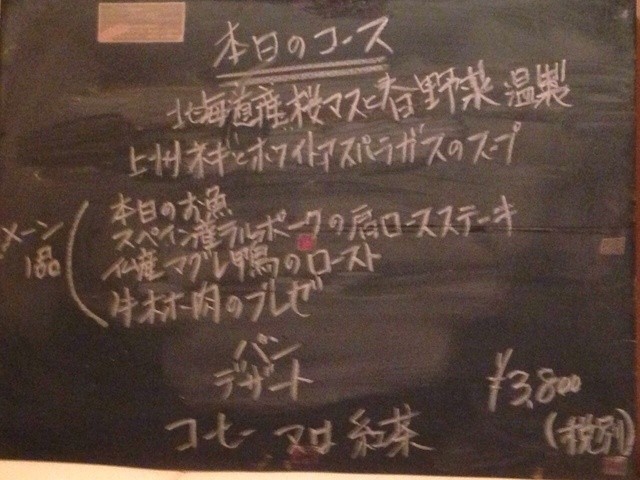 本日のコース
北海道産桜マスと春野菜 温製
上州ネギとホワイトアスパラガスのスープ
メーン1品
本日のお魚
スペイン産ラルポークの肩ロースステーキ
仏産マグレ鴨のロースト
牛ホホ肉のブレゼ
パン
デザート
コーヒー マタハ 紅茶
¥3,800
(税別)